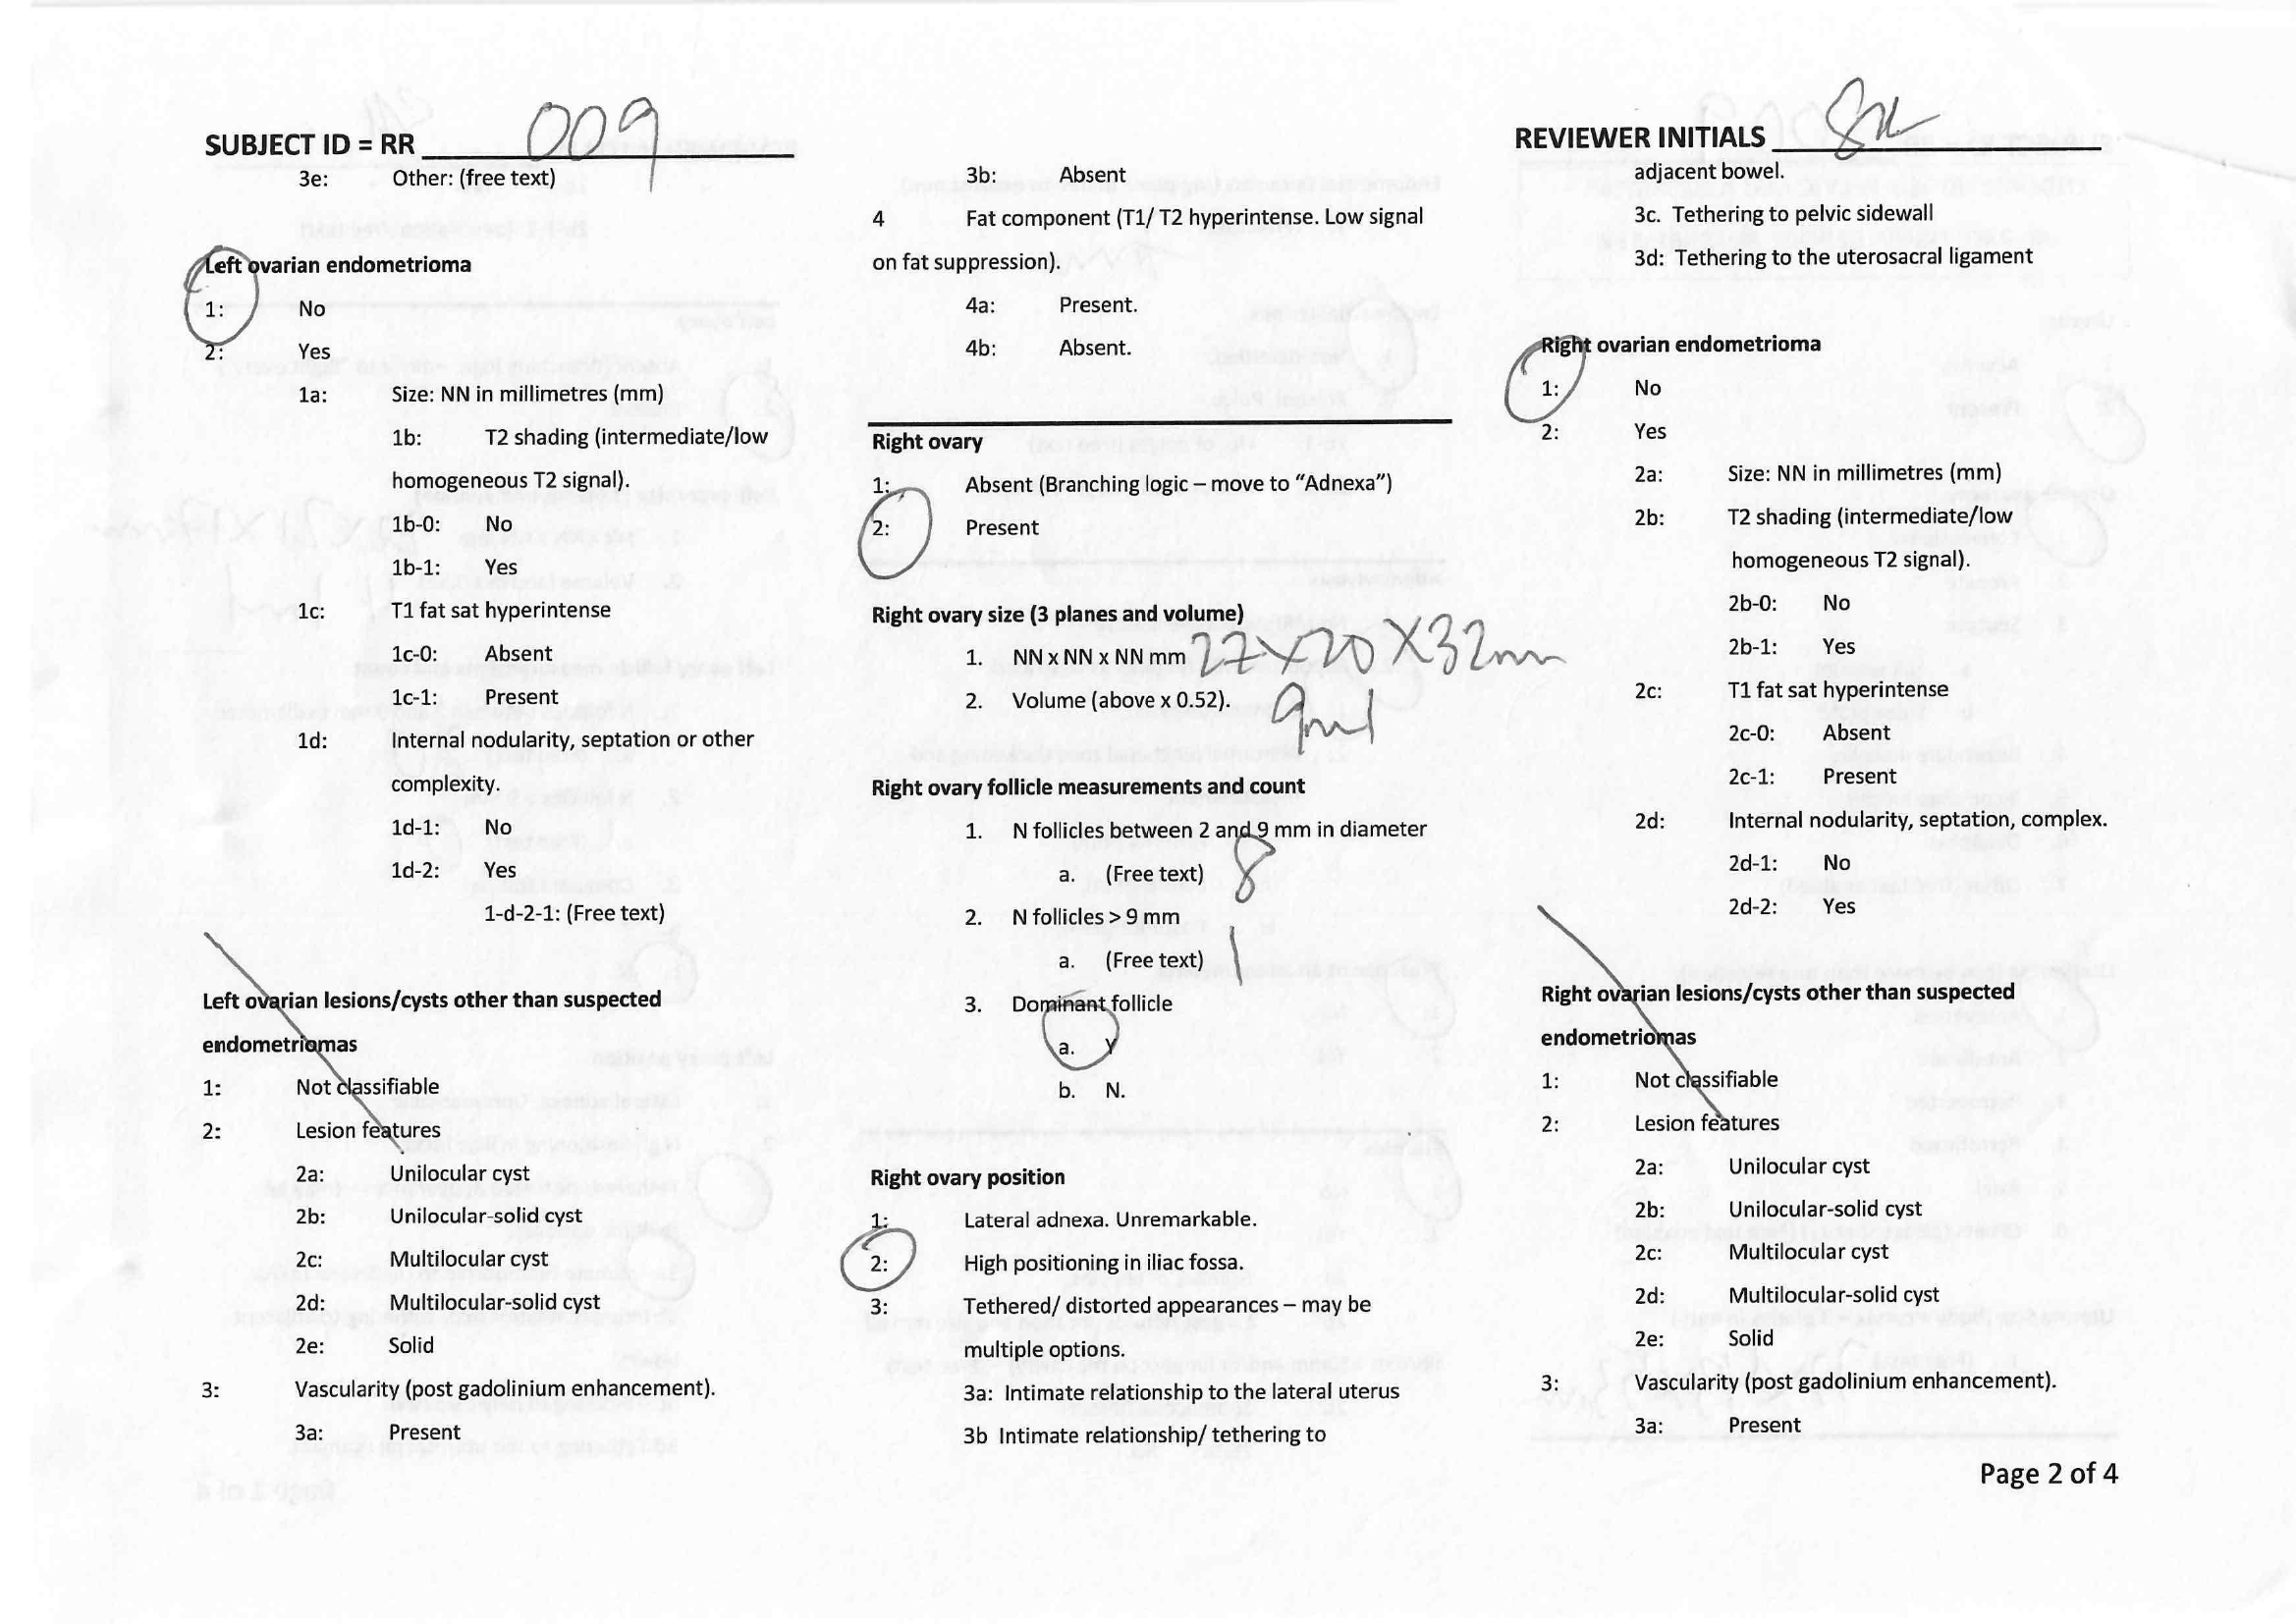 SUBJECT ID = RR 009
3e: Other: (free text)
Left ovarian endometrioma
1: No
2: Yes
1a: Size: NN in millimetres (mm)
1b: T2 shading (intermediate/low
homogeneous T2 signal).
1b-0: No
1b-1: Yes
1c: T1 fat sat hyperintense
1c-0: Absent
1c-1: Present
1d: Internal nodularity, septation or other
complexity.
1d-1: No
1d-2: Yes
1-d-2-1: (Free text)
Left ovarian lesions/cysts other than suspected
endometriomas
1: Not classifiable
2: Lesion features
2a: Unilocular cyst
2b: Unilocular-solid cyst
2c: Multilocular cyst
2d: Multilocular-solid cyst
2e: Solid
3: Vascularity (post gadolinium enhancement).
3a: Present
3b: Absent
4 Fat component (T1/ T2 hyperintense. Low signal
on fat suppression).
4a: Present.
4b: Absent.
Right ovary
1: Absent (Branching logic – move to “Adnexa”)
2: Present
Right ovary size (3 planes and volume)
1. NN x NN x NN mm 27 x 20 x 32mm
2. Volume (above x 0.52). 9ml
Right ovary follicle measurements and count
1. N follicles between 2 and 9 mm in diameter
a. (Free text) 8
2. N follicles > 9 mm
a. (Free text) 1
3. Dominant follicle
a. Y
b. N.
Right ovary position
1: Lateral adnexa. Unremarkable.
2: High positioning in iliac fossa.
3: Tethered/ distorted appearances – may be
multiple options.
3a: Intimate relationship to the lateral uterus
3b Intimate relationship/ tethering to
REVIEWER INITIALS
adjacent bowel.
3c. Tethering to pelvic sidewall
3d: Tethering to the uterosacral ligament
Right ovarian endometrioma
1: No
2: Yes
2a: Size: NN in millimetres (mm)
2b: T2 shading (intermediate/low
homogeneous T2 signal).
2b-0: No
2b-1: Yes
2c: T1 fat sat hyperintense
2c-0: Absent
2c-1: Present
2d: Internal nodularity, septation, complex.
2d-1: No
2d-2: Yes
Right ovarian lesions/cysts other than suspected
endometriomas
1: Not classifiable
2: Lesion features
2a: Unilocular cyst
2b: Unilocular-solid cyst
2c: Multilocular cyst
2d: Multilocular-solid cyst
2e: Solid
3: Vascularity (post gadolinium enhancement).
3a: Present
Page 2 of 4